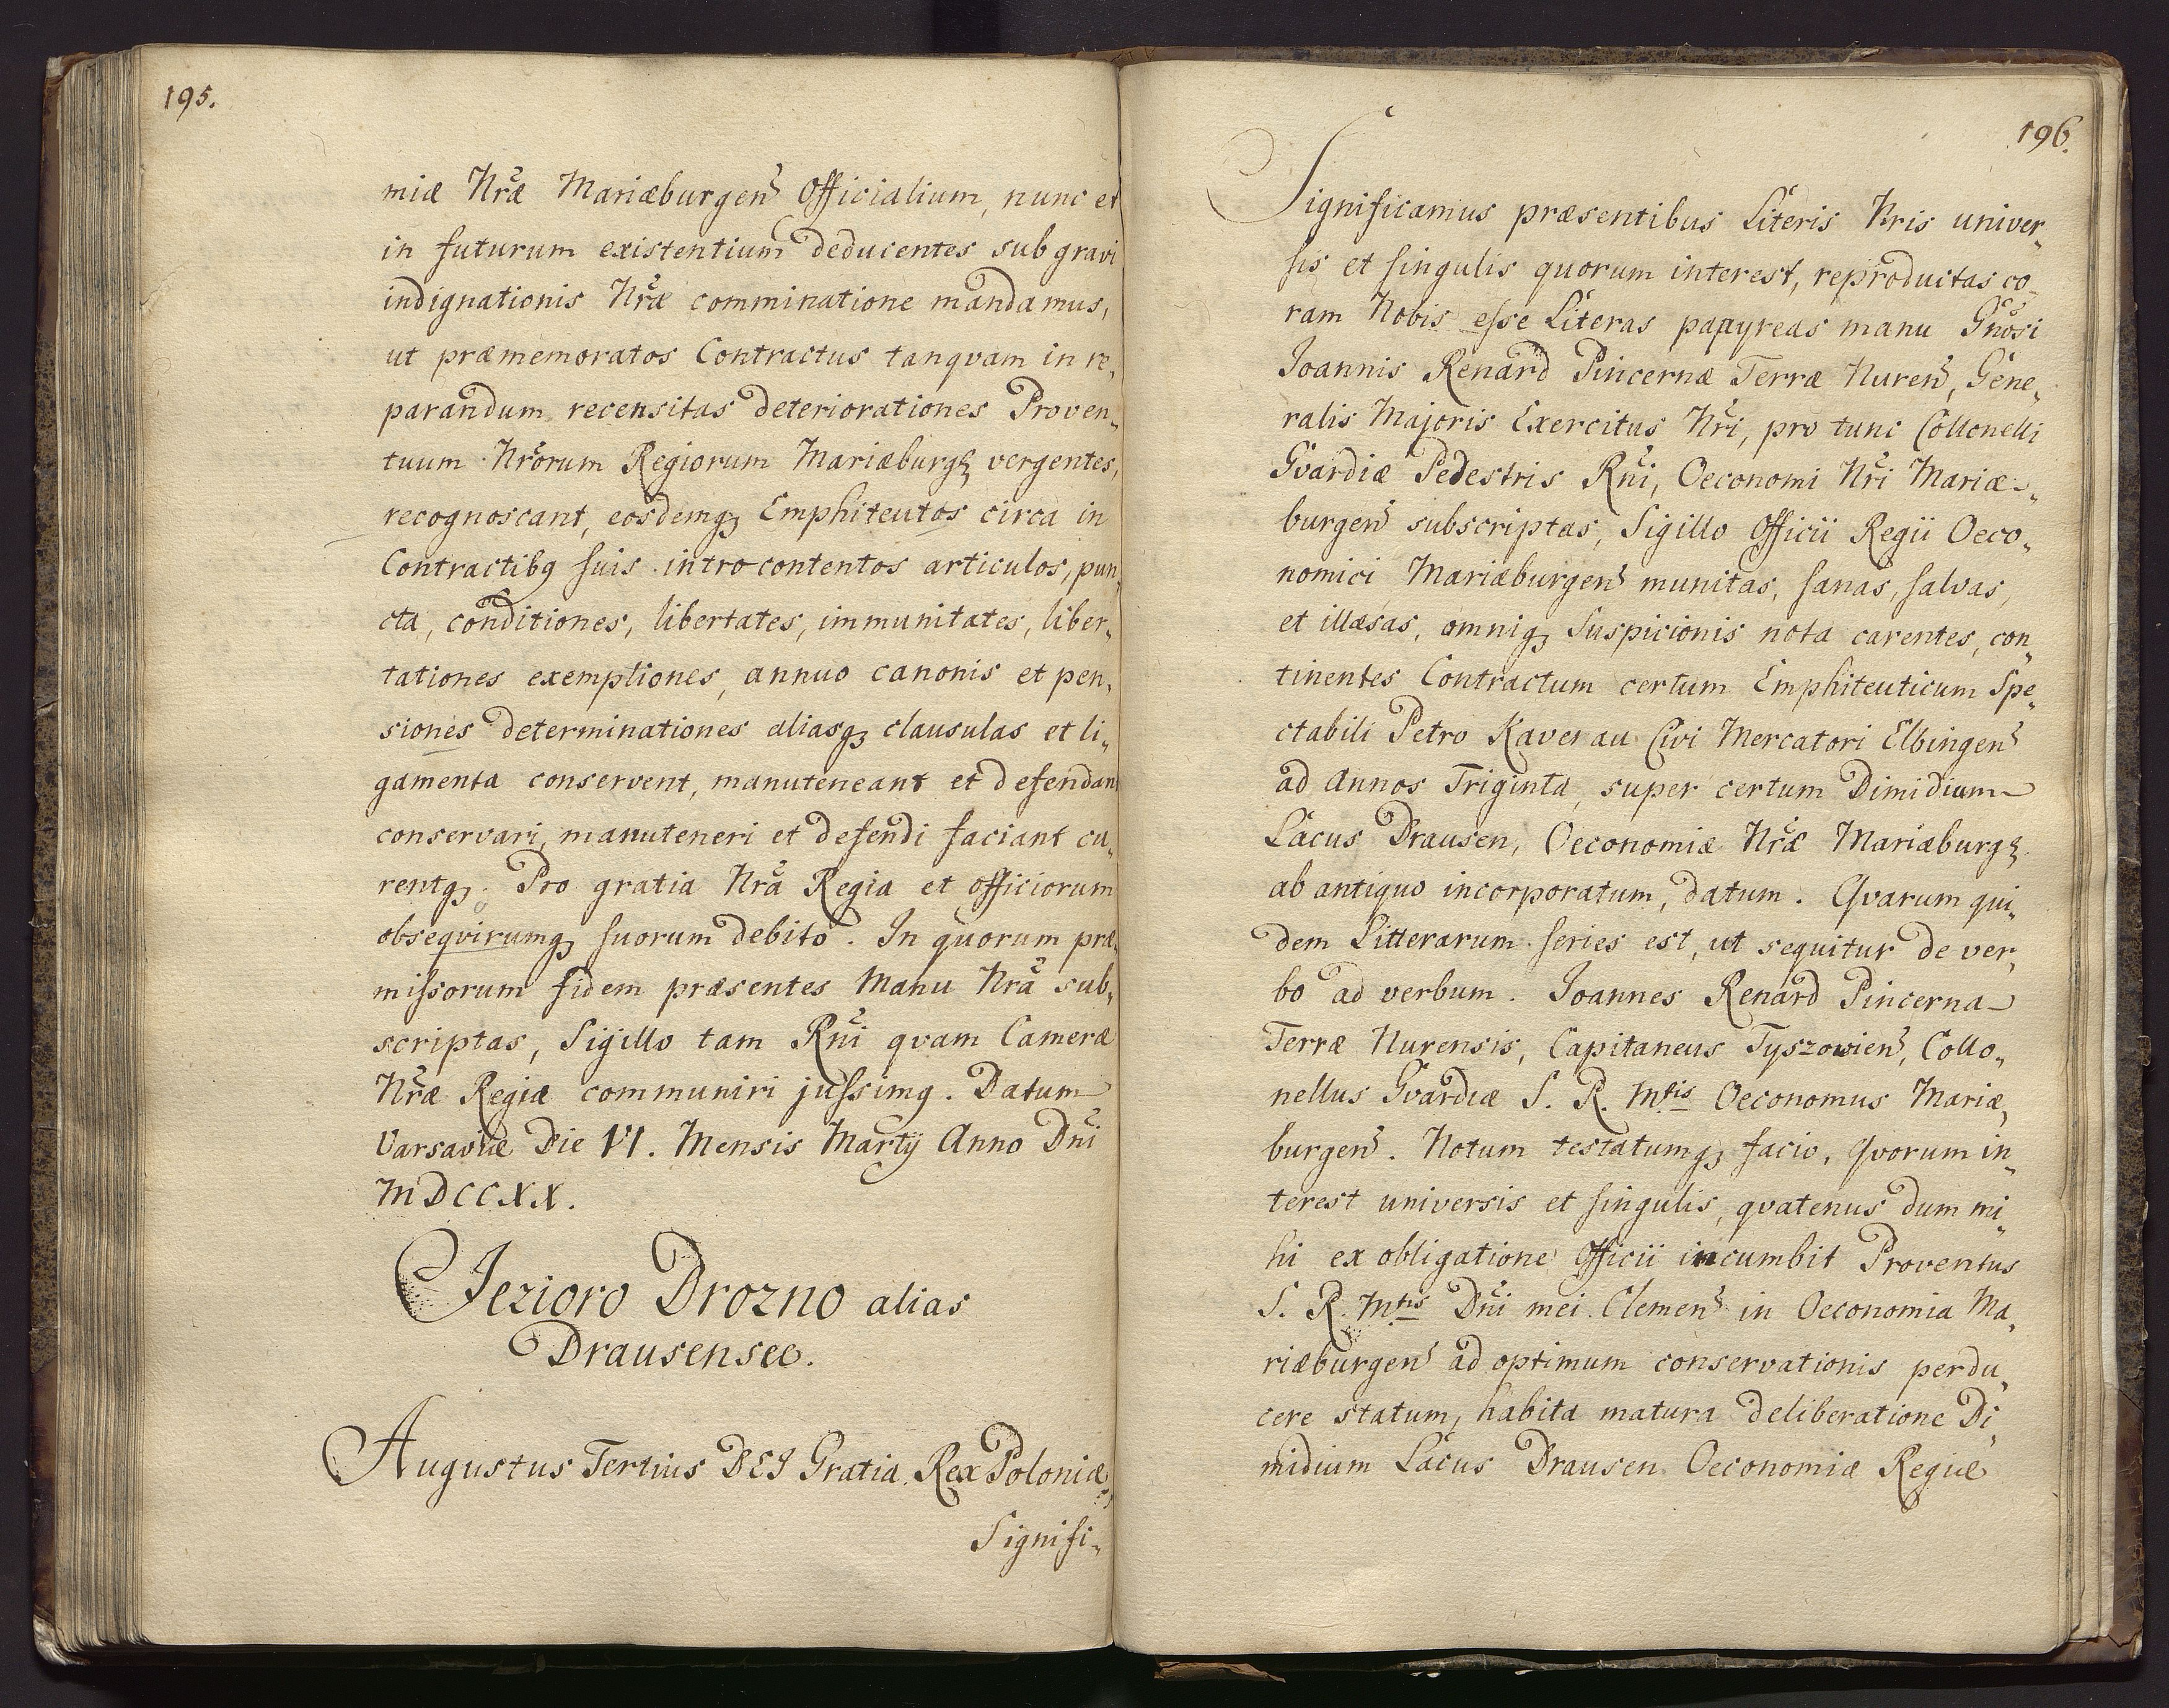 195.
miæ Nræ Mariæburgen Officialium, nunc et
in futurum existentium deducentes sub gravi
indignationis Nræ comminatione mandamus,
ut præmemoratos Contractus tanqvam in re„
parandum recensitas deteriorationes Proven„
tuum Nrorum Regiorum Mariæburgȩ vergentes,
recognoscant, eosdemqꝫ Emphiteutos circa in
Contractibꝯ suis introcontentos articulos, pun„
cta, conditiones, libertates, immunitates, liber„
tationes exemptiones, annuo canonis et pen„
siones determinationes aliasqꝫ clausulas et li„
gamenta conservent, manuteneant et defendant
conservari, manuteneri et defendi faciant cu„
rentqꝫ. Pro gratia Nra Regia et officiorum
obseqvirumqꝫ suorum debito. In quorum præ„
missorum fidem præsentes Manu Nra sub„
scriptas, Sigillo tam Rni qvam Cameræ
Nræ Regiæ communiri jussimꝯ. Datum
Varsaviæ Die VI. Mensis Martij Anno Dni
MDCCXX.
Jezioro Drozno alias
Drausensee.
Augustus Tertius DEI Gratia Rex Poloniæ,
Signifi„
196.
Significamus præsentibus Literis Nris univer„
sis et singulis quorum interest, reproductas co„
ram Nobis esse Literas papyreas manu Gnosi
Joannis Renard Pincernæ Terræ Nuren, Gene„
ralis Majoris Exercitus Nri, pro tunc Collonelli
Gvardiæ Pedestris Rni, Oeconomi Nri Mariæ„
burgen subscriptas, Sigillo Officii Regii Oeco„
nomici Mariæburgen munitas, sanas, salvas,
et illæsas, omniqꝫ Suspicionis nota carentes, con„
tinentes Contractum certum Emphiteuticum Spe„
ctabili Petro Kaverau Civi Mercatori Elbingen
ad Annos Triginta, super certum Dimidium
Lacus Drausen, Oeconomiæ Nræ Mariæburgȩ
ab antiquo incorporatum, datum. Qvarum qui„
dem Litterarum series est, ut sequitur de ver„
bo ad verbum. Joannes Renard Pincerna
Terræ Nurensis, Capitaneus Tyszowien, Collo„
nellus Gvardiæ S. R. Mtis Oeconomus Mariæ„
burgen. Notum testatumqꝫ facio, Qvorum in„
terest universis et singulis, qvatenus dum mi„
hi ex obligatione Officii incumbit Proventus
S. R. Mtis Dni mei Clemen in Oeconomia Ma„
riæburgen ad optimum conservationis perdu„
cere statum, habita matura deliberatione Di„
midium Lacus Drausen Oeconomiæ Regiæ